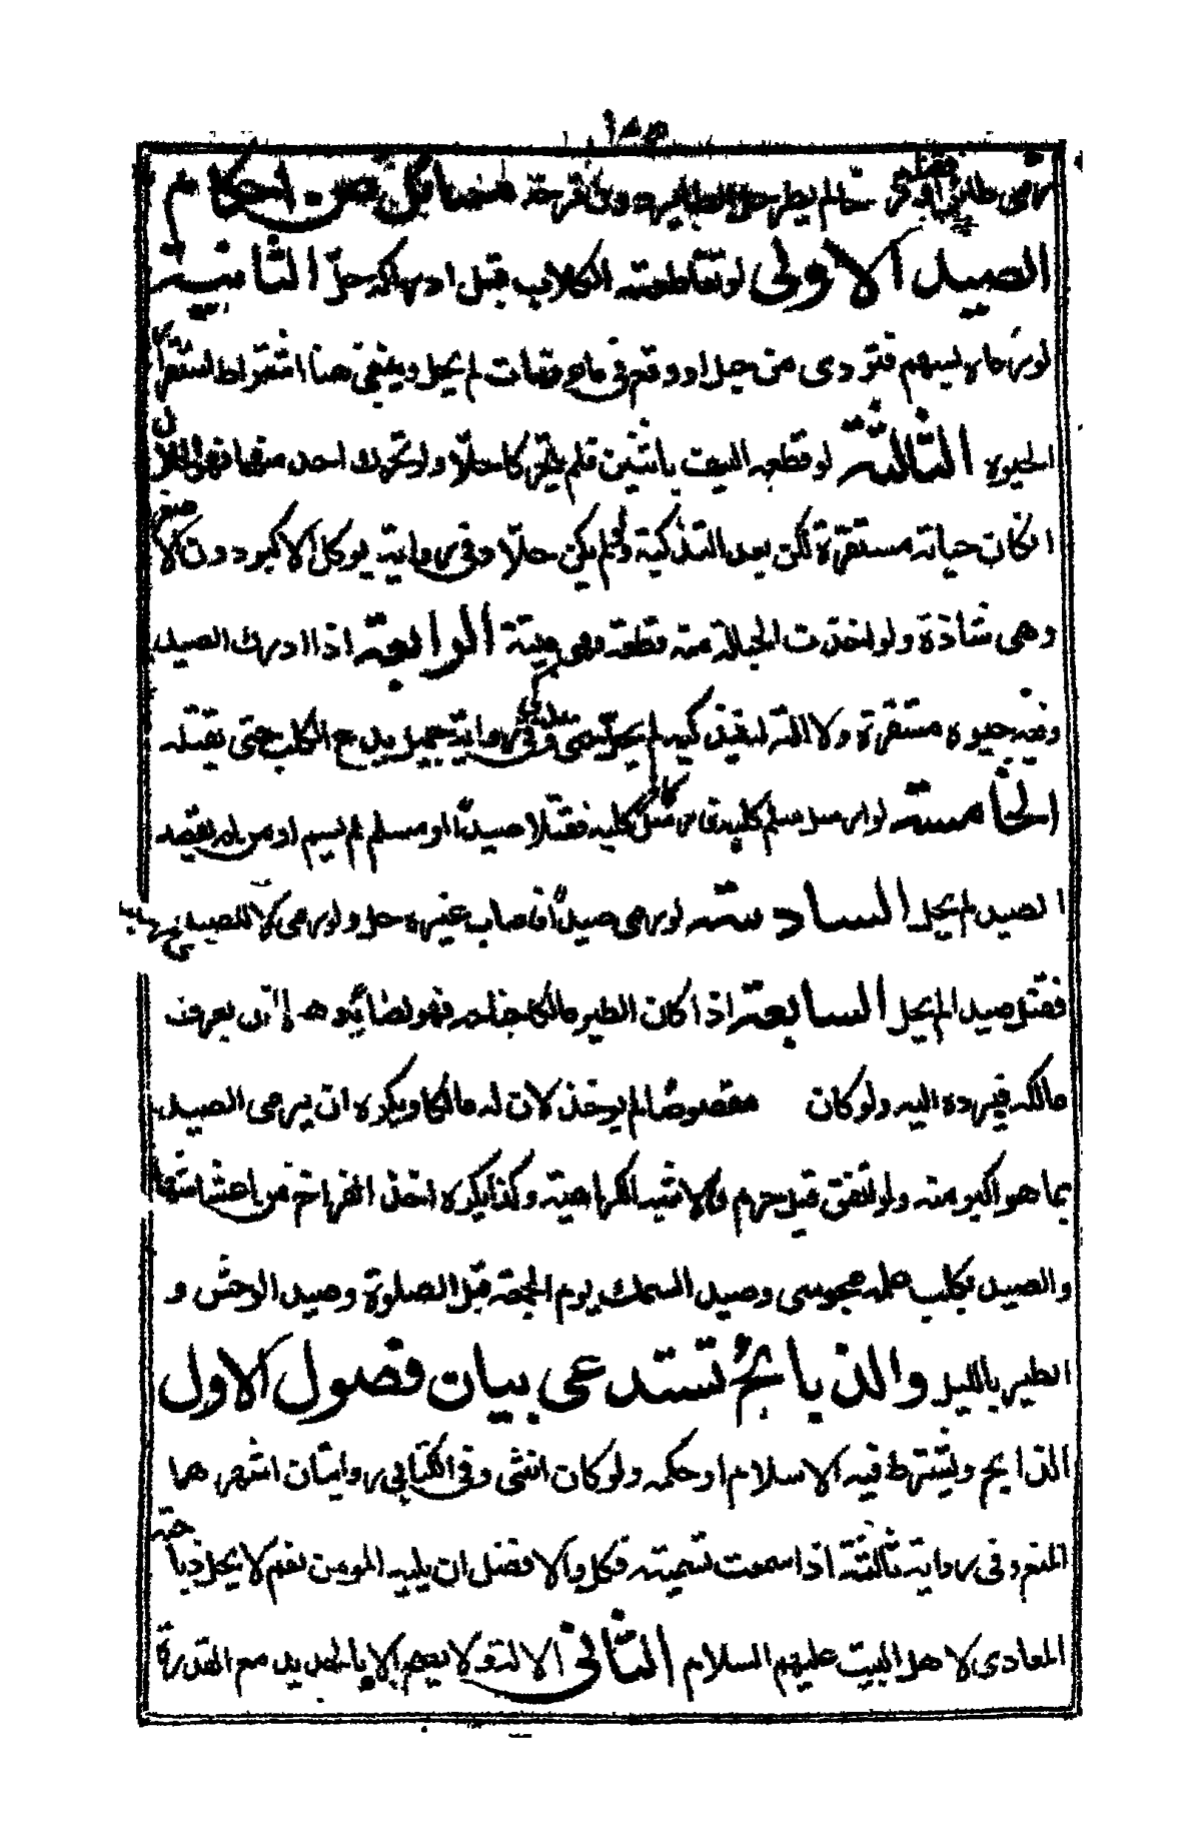 ١٨٥
رمى طائرا و فرخا لم يطر حل الطائر دون فرخه مسائل من احكام
الصيد الاولى لو تقاطعته الكلاب قبل ادراكه حل الثانية
لو رماه بسهم فتردى من جبل او وقع فى ماء فمات لم يحل وينبغى هنا اشتراط استقرار
الحيوة الثالثة لو قطعه السيف باثنين فلم يتحركا حلا ولو تحرك احد منهما فهو الحلال
ان كان حياته مستقرة لكن بعد التذكية ولو لم يكن حلا وفى رواية يوكل الاكبر دون الاصغر
وهى شاذة ولو اخذت الحبالة منه قطعة فهى ميتة الرابعة اذا ادرك الصيد
وفيه حيوة مستقرة ولا آلة ليذكيه لم يحل حتى يذكى وفى رواية جميل يدع الكلب حتى يقتله
الخامسة لو ارسل مسلم كلبه وارسل كافر كلبه فقتلا صيدا او مسلم لم يسم او من لم يقصد
الصيد لم يحل السادسة لو رمى صيدا فاصاب غيره حل ولو رمى لا للصيد
فقتل صيدا لم يحل السابعة اذا كان الطير مالكا جناحه فهو لصائده الا ان يعرف
مالكه فيرده اليه ولو كان مقصوصا لم يوخذ لان له مالكا ويكره ان يرمى الصيد
بما هو اكبر منه ولو اتفق قيل حرم والاشبه الكراهية وكذا يكره اخذ الفراخ من اعشاشها
والصيد بكلب علمه مجوسى وصيد السمك يوم الجمعة قبل الصلوة وصيد الوحش و
الطير بالليل والذبايح تستدعى بيان فصول الاول
الذابح ويشترط فيه الاسلام او حكمه ولو كان انثى وفى الكتابى روايتان اشهرهما
المنع وفى رواية ثالثة اذا سمعت تسميته فكل والافضل ان يليه المومن نعم لا يحل ذباحة
المعادى لاهل البيت عليهم السلام الثانى الالة ولا يصح الا بالحديد مع القدرة